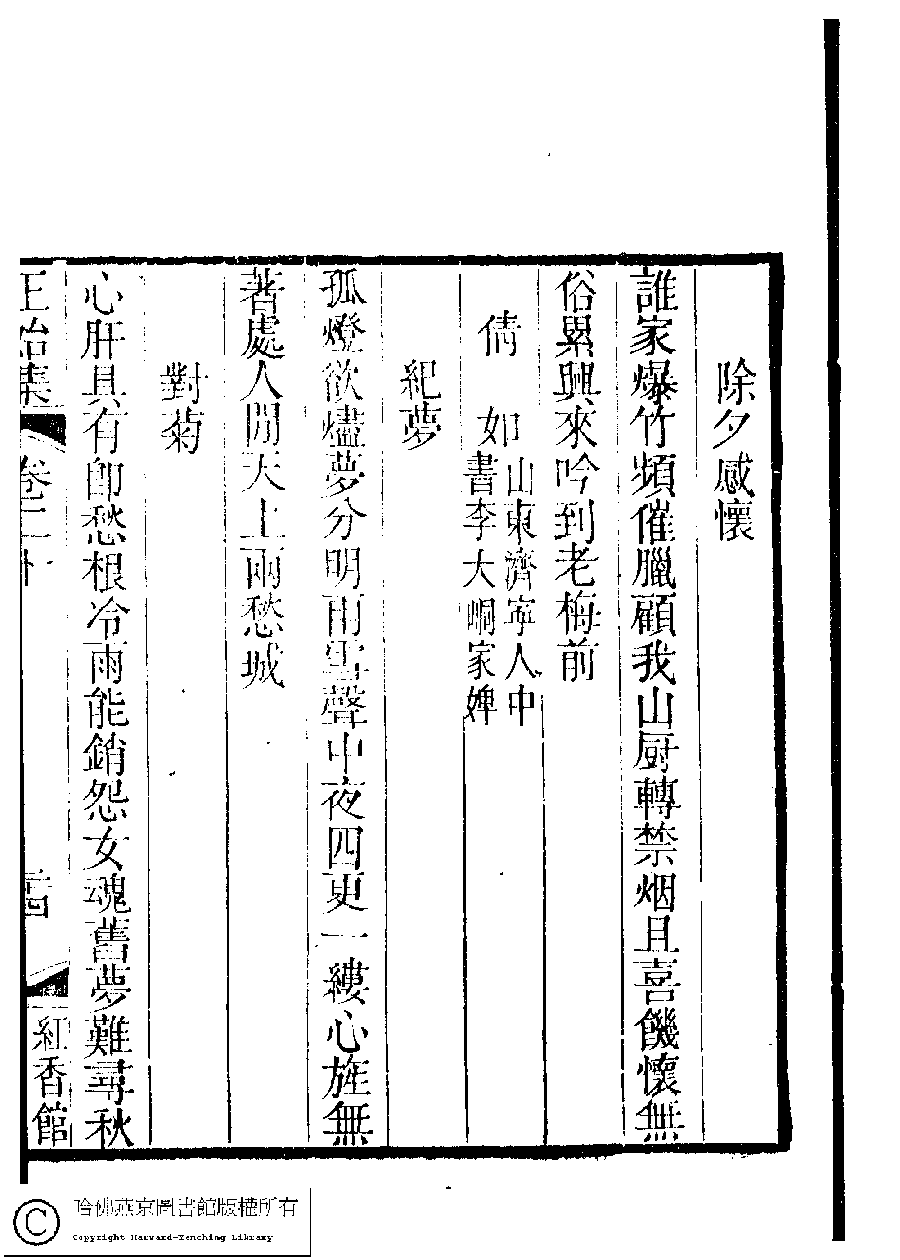 除夕感懷
誰家爆竹頻催臘顧我山厨轉禁烟且喜饑懷無
俗累興來吟到老梅前
倩如山東濟寧人中書李大峒家婢
紀夢
孤燈欲燼夢分明雨雪聲中夜四更一縷心旌無
著處人間天上兩愁城
對菊
心肝具有卽愁根冷雨能銷怨女魂舊夢難尋秋
正始集 卷二十 紅香館
哈佛燕京圖書館版權所有
Copyright Harvard-Yenching Library